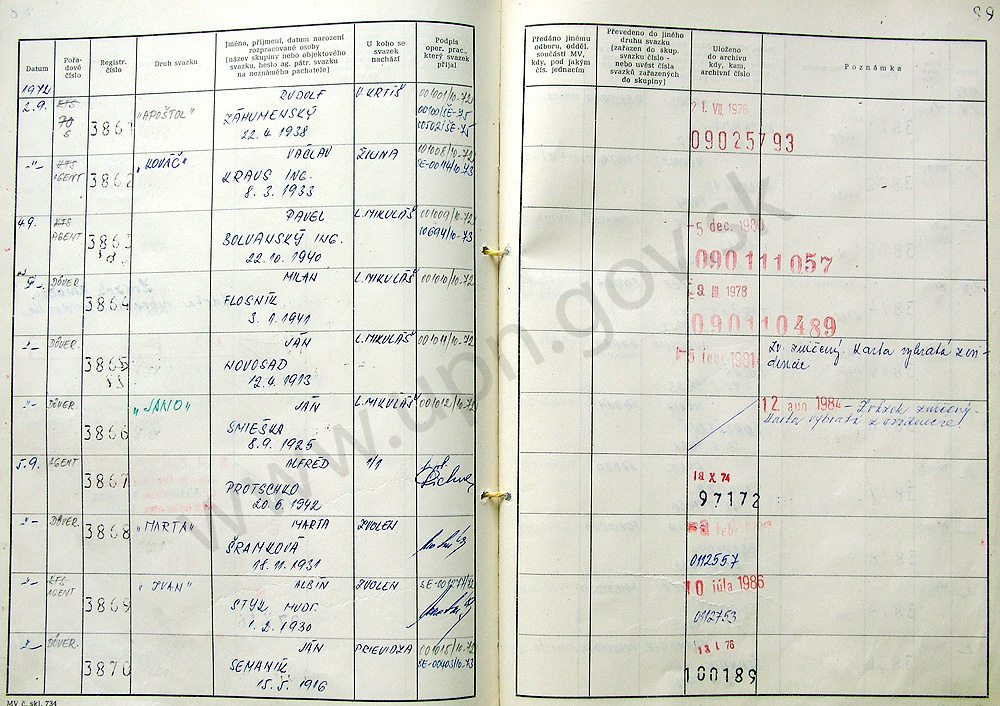 89
Datum
Pořa-
dové
číslo
Registr.
číslo
Druh svazku
Jméno, příjmení, datum narození
rozpracované osoby
(název skupiny nebo objektového
svazku, heslo ag. pátr. svazku
na neznámého pachatele)
U koho se
svazek
nachází
Podpis
oper. prac.,
který svazek
přijal
Předáno jinému
odboru, odděl.
součásti MV,
kdy, pod jakým
čís. jednacím
Převedeno do jiného
druhu svazku
(zařazen do skup.
svazku číslo -
nebo uvést čísla
svazků zařazených
do skupiny)
Uloženo
do archivu
kdy, kam,
archivní číslo
Poznámka
1972
2.9.
3861
"APOŠTOL"
RUDOLF
ZÁHUMENSKÝ
22.4.1938
V. KRTÍŠ
001001/10-72
21. VII. 1976
09025793
-"-
KTS
AGENT
3862
"KOVÁČ"
VÁCLAV
KRAUS ING.
8.3.1933
ŽILINA
001008/10-72
4.9.
KTS
AGENT
3863
PAVEL
BOLVANSKÝ ING.
22.10.1940
L. MIKULÁŠ
001009/10-72
00694/10-73
-5 dec. 1980
090111057
DÔVER.
3864
MILAN
FLOSNÍK
3.1.1941
L. MIKULÁŠ
001010/10-72
29. III. 1978
090110489
-"-
DÔVER.
3865
JÁN
NOVOSAD
12.4.1913
L. MIKULÁŠ
001011/10-72
5 febr. 1981
Zv. zničený. Karta vybratá z evi-
dencie
-"-
DÔVER.
3866
"JANO"
JÁN
SMIEŠKA
8.9.1925
L. MIKULÁŠ
001012/10-72
12. aug 1984 - Zväzok zničený.
Karta vybratá z evidencie!
5.9.
AGENT
3867
ALFRÉD
PROTSCHKO
20.6.1942
1/1
18 X 74
97172
-"-
DÔVER.
3868
"MARTA"
MARTA
ŠRAMKOVÁ
18.11.1931
ZVOLEN
0112557
-"-
KTS
AGENT
3869
"IVAN"
ALBÍN
STYK MUDr.
1.2.1930
ZVOLEN
10 júla 1986
0112753
DÔVER.
3870
JÁN
SEMANÍK
15.5.1916
PRIEVIDZA
001015/10-72
SE-00403/10-73
100189
MV č. skl. 734
www.upn.gov.sk